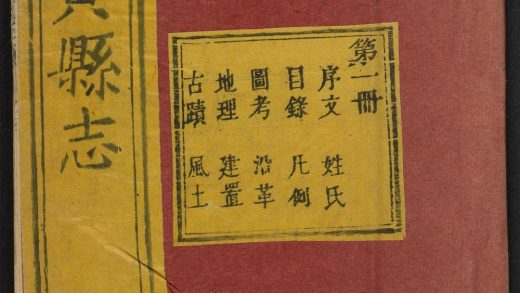 縣志
第一冊
序文 姓氏
目錄 凡例
圖考 沿革
地理 建置
古蹟 風土